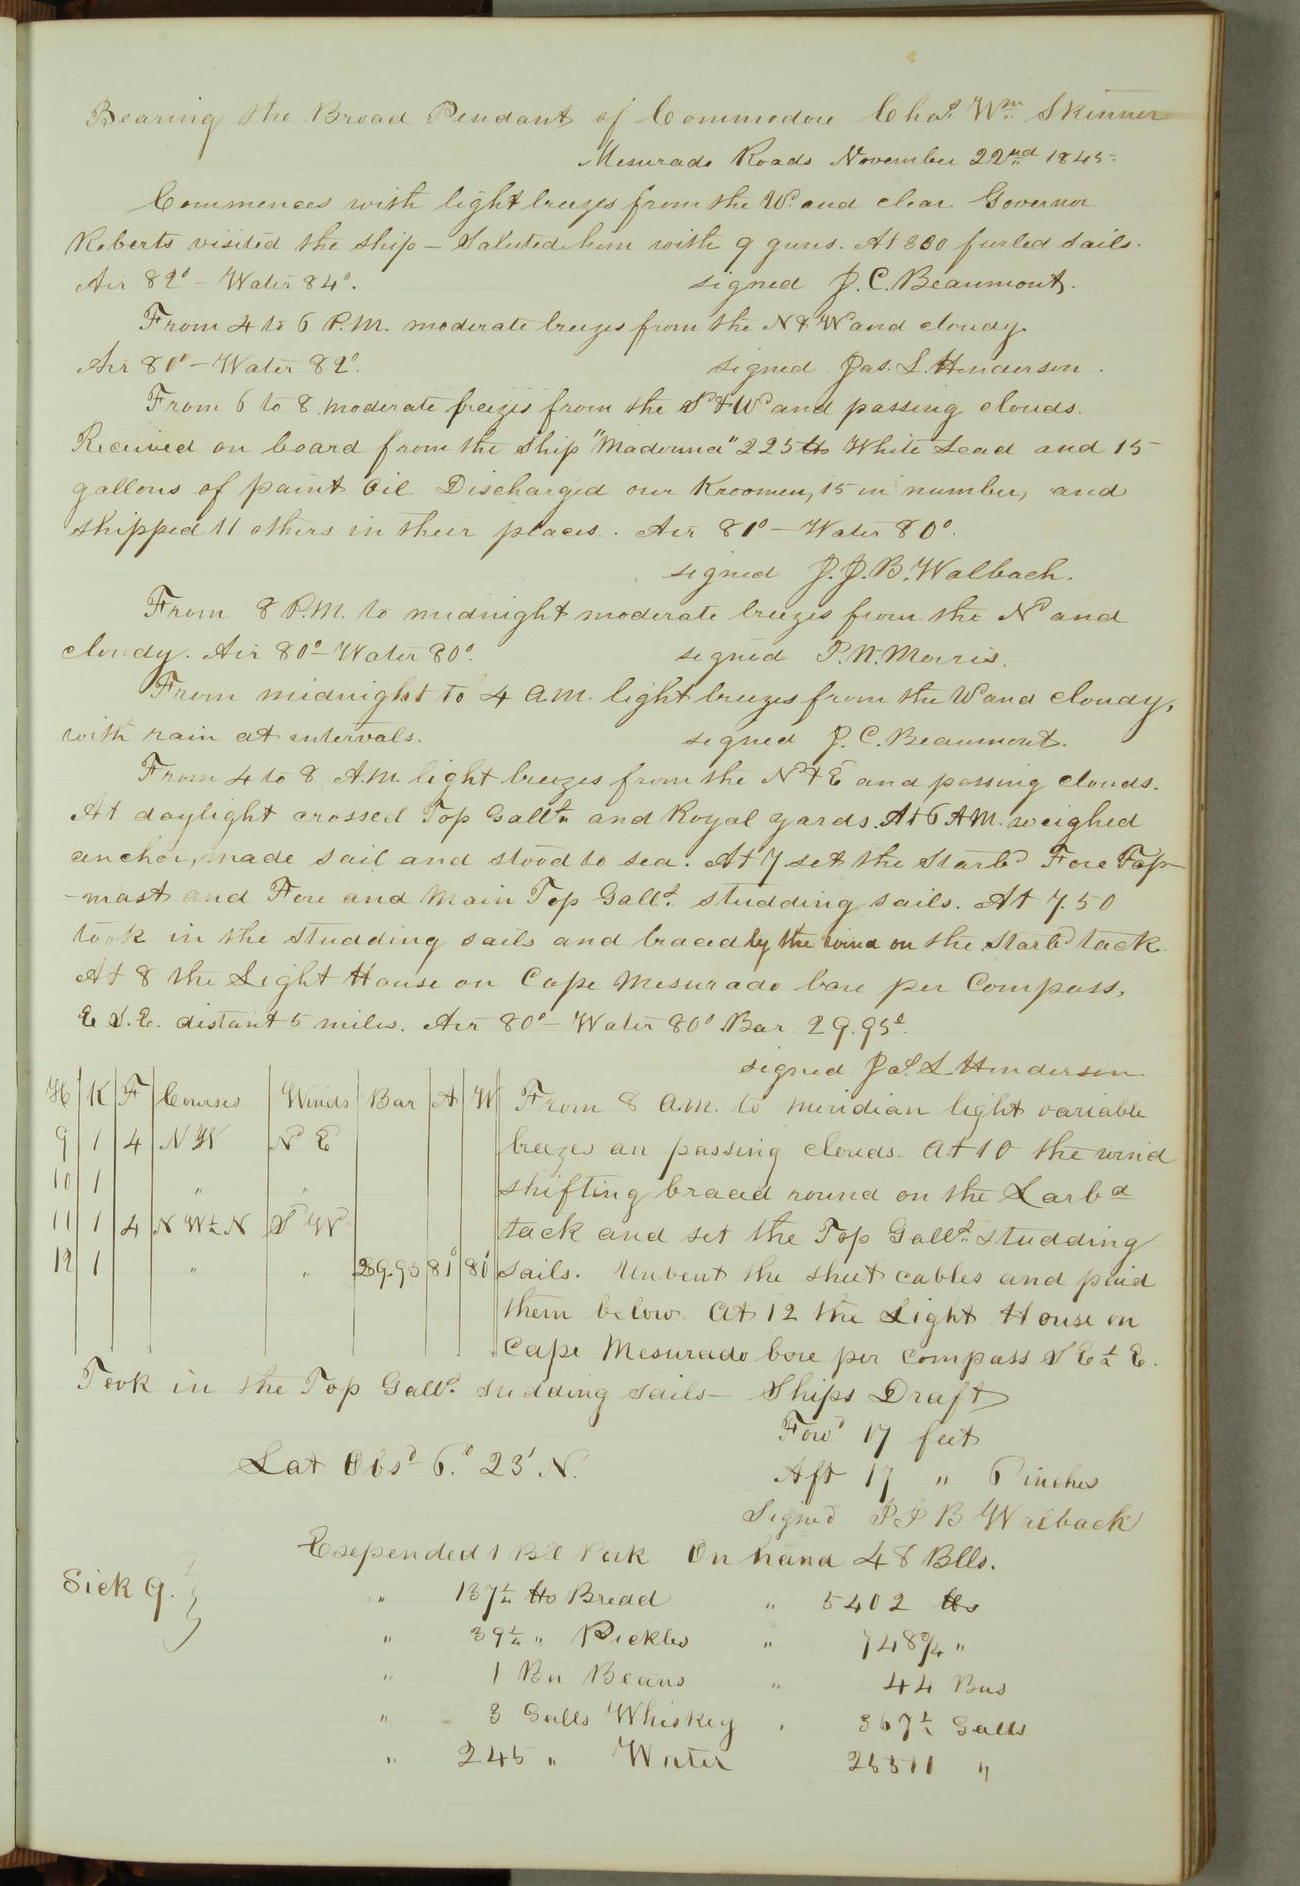 Bearing the Broad Pendant of Commodore Chas. Wm. Skinner
Mesurado Roads November 22nd 1845.
Commences with light breezes from the W. and clear. Governor
Roberts visited the ship – Saluted him with 9 guns. At 8 30 furled sails.
Air 82° – Water 84°. signed J. C. Beaumont.
From 4 to 6 P.M. moderate breezes from the N & W and cloudy.
Air 80° – Water 82°. signed Jas. L. Henderson.
From 6 to 8 moderate breezes from the S & W and passing clouds.
Received on board from the Ship "Madonna" 225 lbs White Lead and 15
gallons of paint Oil. Discharged our Kroomen, 15 in number, and
shipped 11 others in their places. Air 81° – Water 80°.
signed J. J. B. Walbach.
From 8 P.M. to midnight moderate breezes from the Nd and
cloudy. Air 80° – Water 80°. signed P. N. Morris.
From midnight to 4 A.M. light breezes from the W and cloudy,
with rain at intervals. signed J. C. Beaumont.
From 4 to 8 A.M. light breezes from the N & E and passing clouds.
At daylight crossed Top Gallt. and Royal yards. At 6 A.M. weighed
anchor, made sail and stood to sea. At 7 set the Starbd Fore Top-
-mast and Fore and Main Top Gallt. studding sails. At 7.50
took in the studding sails and braced by the wind on the Starbd tack.
At 8 the Light House on Cape Mesurado bore per Compass,
E S. E. distant 5 miles. Air 80° – Water 80° Bar 29.95.
signed Jas. L Henderson
H K F Courses Winds Bar A W
9 1 4 N W N E
10 1 " "
11 1 4 N W ½ N S W
12 1 " " 29.95 81° 80°
From 8 A.M. to meridian light variable
breezes an passing clouds. At 10 the wind
shifting braced round on the Larbd
tack and set the Top Gallt. studding
sails. Unbent the sheet cables and paid
them below. At 12 the Light House on
Cape Mesurado bore per compass S E ½ E.
Took in the Top Gallt. sudding sails – Ships Draft
Forwd 17 feet
Lat Obsd 6.° 23' N.
Aft 17 " 6 inches
Signed J J B Walback
Exepended 1 Bll Pork On hand 48 Blls.
Sick 9.
" 137½ lbs Bread " 5402 lbs
" 39¼ " Pickles " 748¾ "
" 1 Bu Beans " 44 Bus
" 3 Galls Whiskey " 367½ Galls
" 245 " Water 25511 "